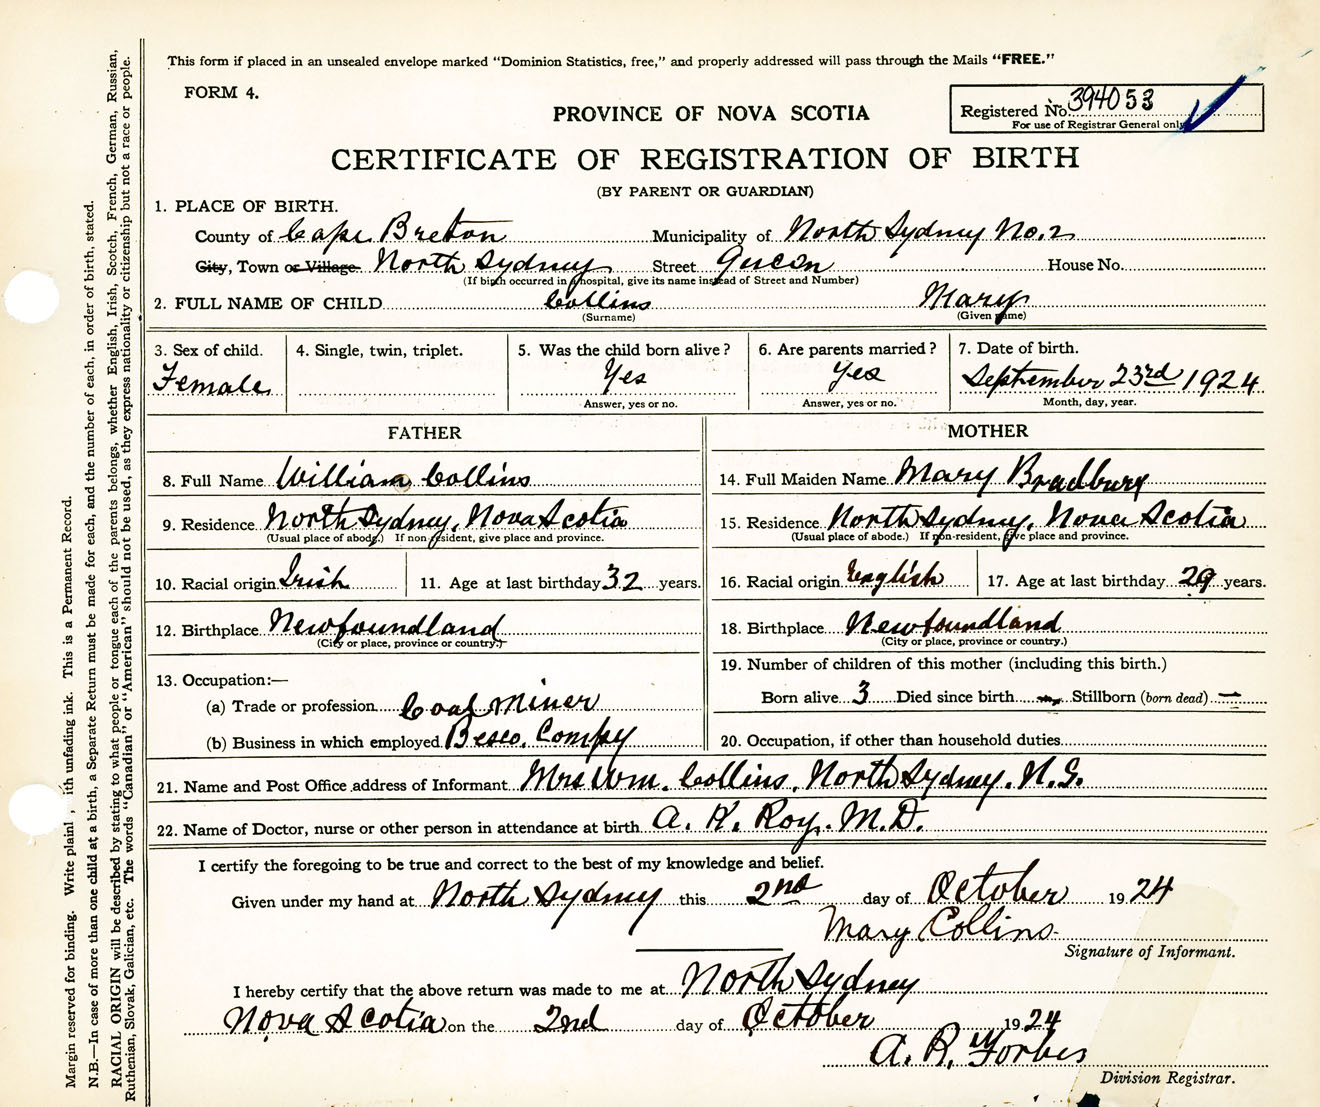 This form if placed in an unsealed envelope marked "Dominion Statistics, free," and properly addressed will pass through the Mails "FREE."
FORM 4.
PROVINCE OF NOVA SCOTIA
Registered No. 394053
For use of Registrar General only
CERTIFICATE OF REGISTRATION OF BIRTH
(BY PARENT OR GUARDIAN)
1. PLACE OF BIRTH.
County of Cape Breton Municipality of North Sydney No. 2
City, Town or Village North Sydney Street Queen House No.
(If birth occurred in a hospital, give its name instead of Street and Number)
2. FULL NAME OF CHILD Collins Mary
(Surname) (Given name)
3. Sex of child. 4. Single, twin, triplet. 5. Was the child born alive? 6. Are parents married? 7. Date of birth.
Female Yes Yes September 23rd 1924
Answer, yes or no. Answer, yes or no. Month, day, year.
FATHER MOTHER
8. Full Name William Collins 14. Full Maiden Name Mary Bradbury
9. Residence North Sydney, Nova Scotia 15. Residence North Sydney, Nova Scotia
(Usual place of abode.) If non-resident, give place and province. (Usual place of abode.) If non-resident, give place and province.
10. Racial origin Irish 11. Age at last birthday 32 years. 16. Racial origin English 17. Age at last birthday 29 years.
12. Birthplace Newfoundland 18. Birthplace Newfoundland
(City or place, province or country.) (City or place, province or country.)
13. Occupation:— 19. Number of children of this mother (including this birth.)
(a) Trade or profession Coal Miner Born alive 3 Died since birth — Stillborn (born dead) —
(b) Business in which employed Besco. Compy 20. Occupation, if other than household duties
21. Name and Post Office address of Informant Mrs Wm. Collins, North Sydney. N.S.
22. Name of Doctor, nurse or other person in attendance at birth A. K. Roy. M.D.
I certify the foregoing to be true and correct to the best of my knowledge and belief.
Given under my hand at North Sydney this 2nd day of October 1924
Mary Collins
Signature of Informant.
I hereby certify that the above return was made to me at North Sydney
Nova Scotia on the 2nd day of October 1924
A. R. Forbes
Division Registrar.
Margin reserved for binding. Write plainl , ith unfading ink. This is a Permanent Record.
N.B.—In case of more than one child at a birth, a Separate Return must be made for each, and the number of each, in order of birth, stated.
RACIAL ORIGIN will be described by stating to what people or tongue each of the parents belongs, whether English, Irish, Scotch, French, German, Russian,
Ruthenian, Slovak, Galician, etc. The words "Canadian" or "American" should not be used, as they express nationality or citizenship but not a race or people.